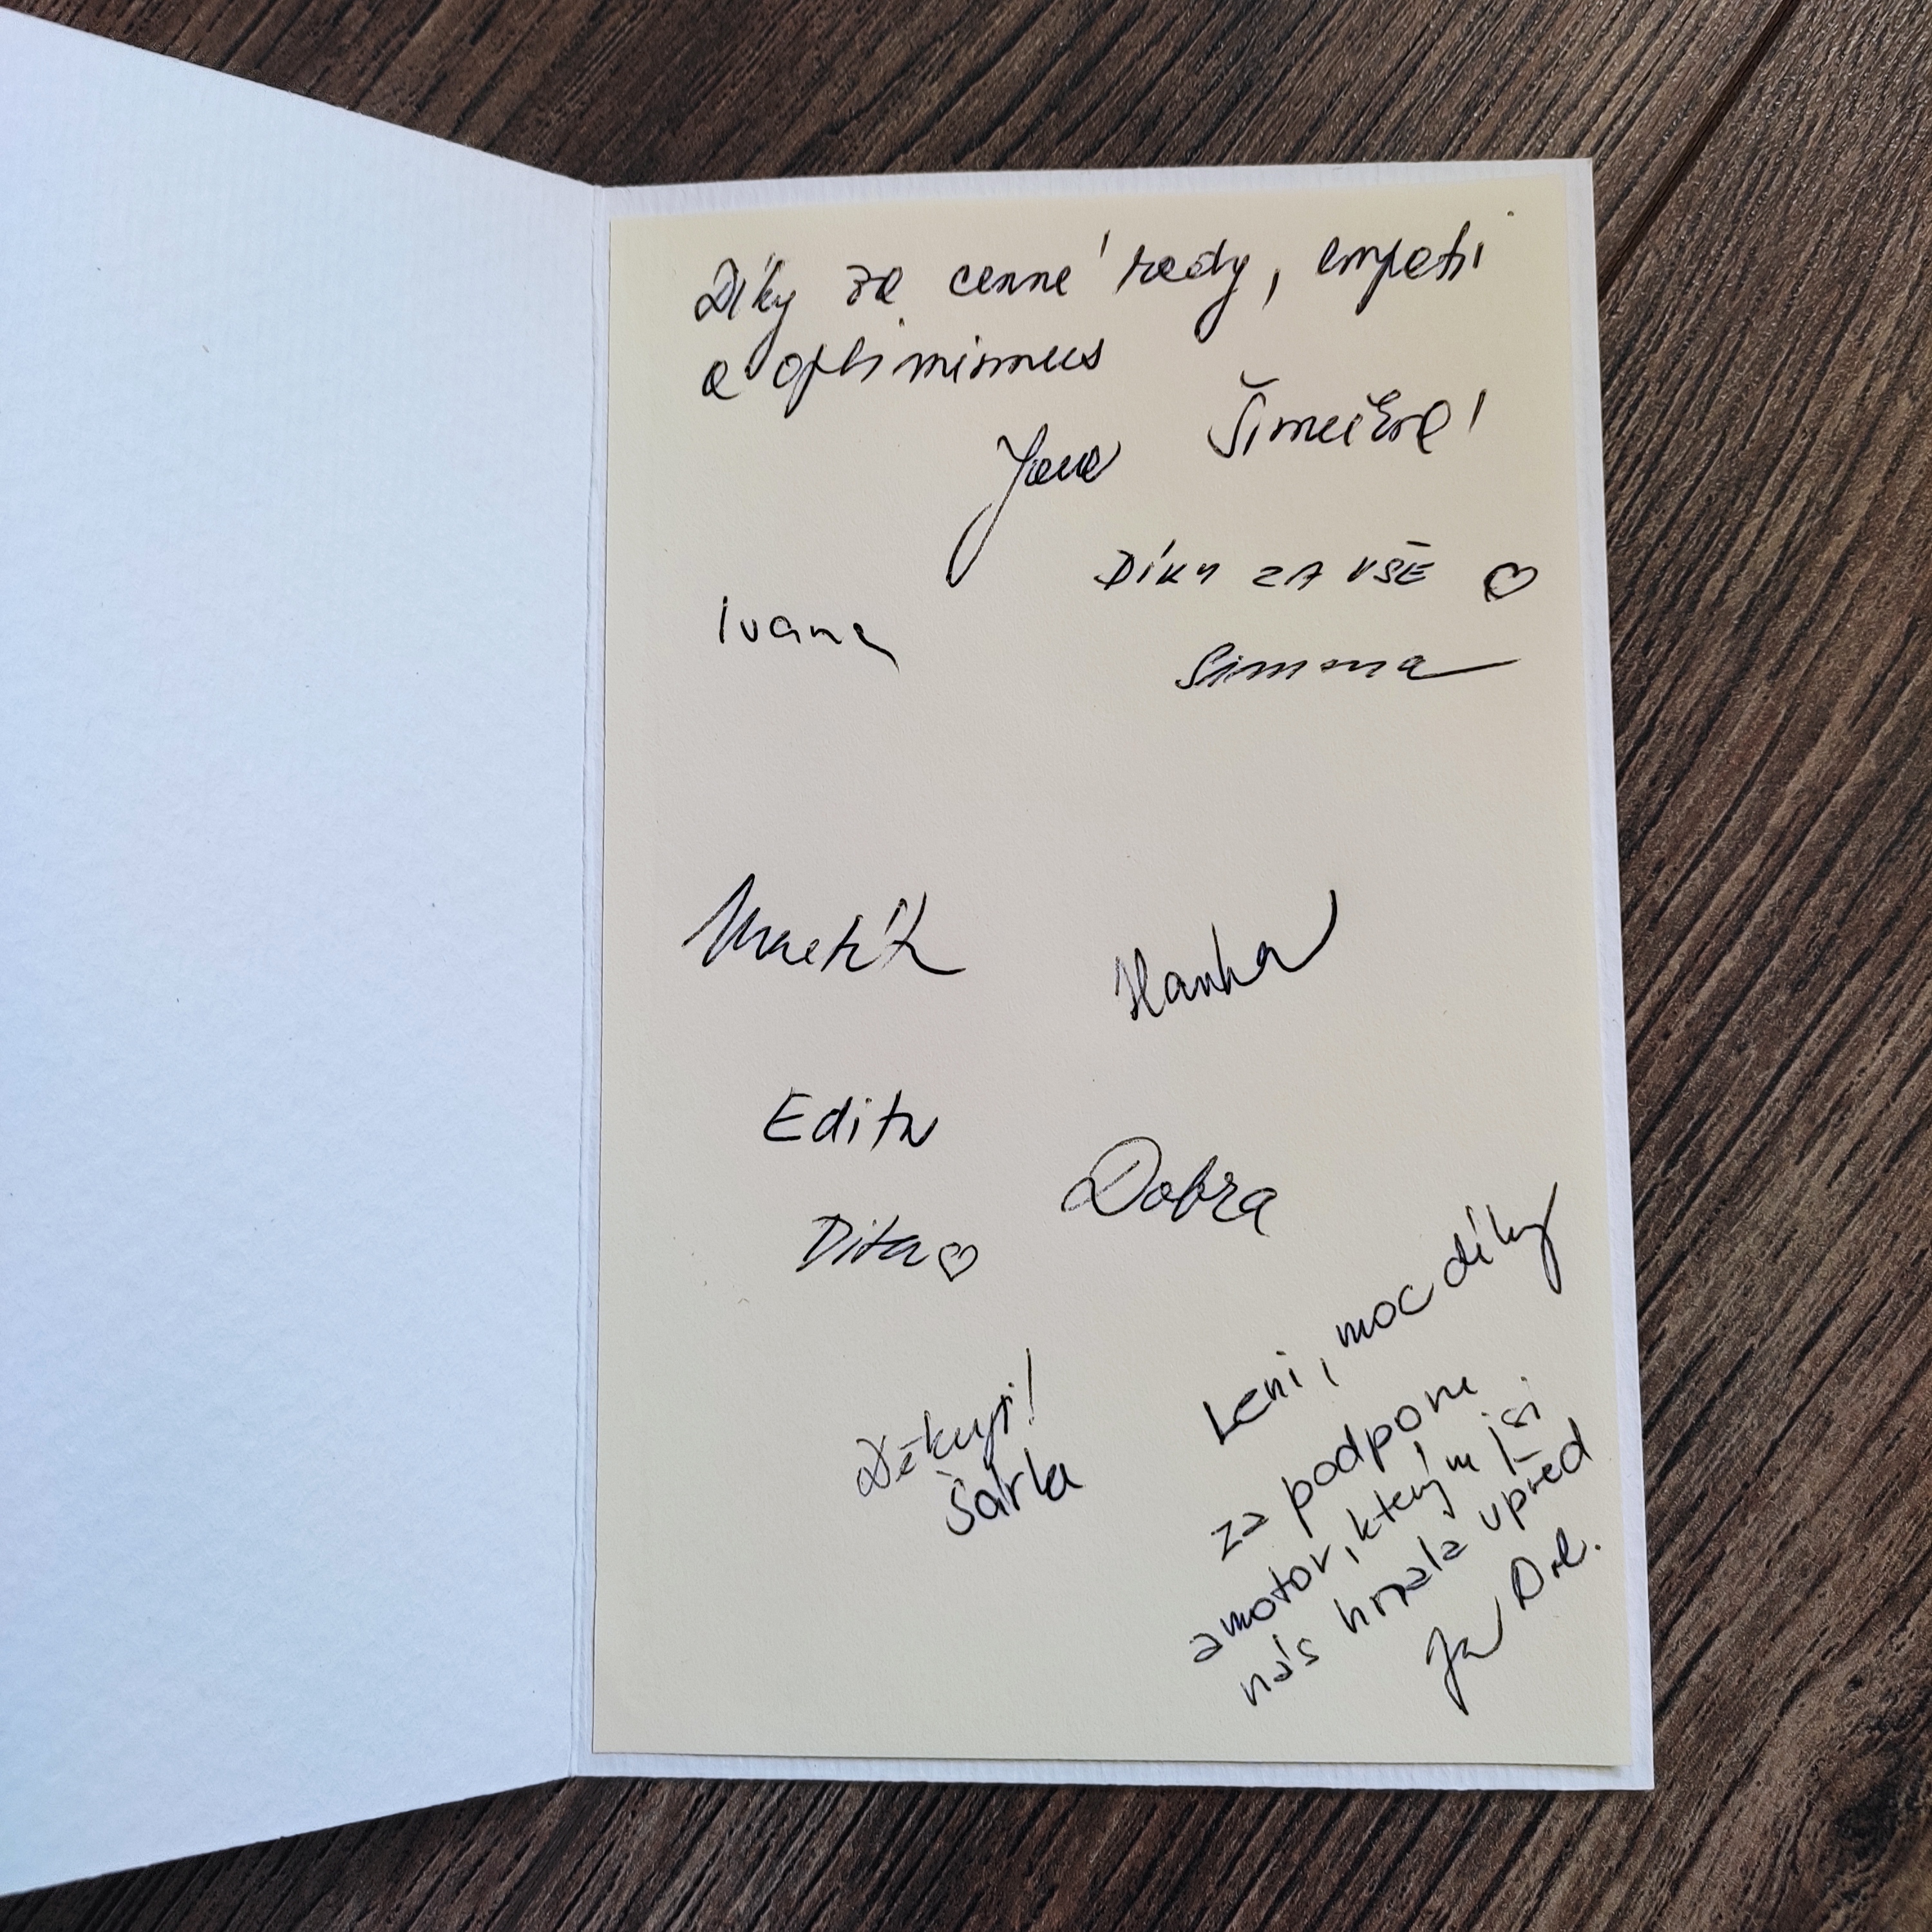 Díky za cenné rady, empatii
a optimismus
Jana
Díky za vše ♡
Simona
Ivana
Hanka
Edita
Dobra
Dita ♡
Děkuji!
Šárka
Leni, moc díky
za podporu
a motor, kterým jsi
nás hrnula vpřed